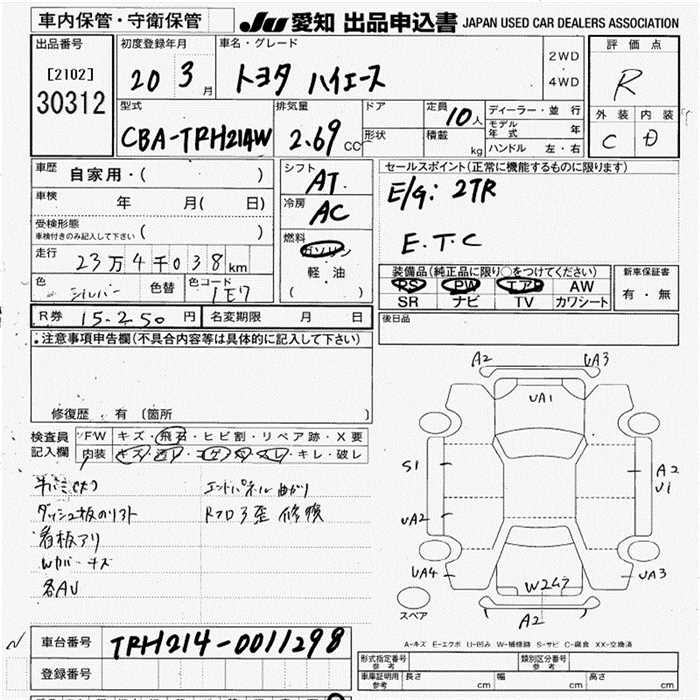 車内保管・守衛保管
JU 愛知 出品申込書 JAPAN USED CAR DEALERS ASSOCIATION
出品番号
[2102]
30312
初度登録年月
20 3月
車名・グレード
トヨタ ハイエース
2WD
4WD
評価点
R
外装 内装
C D
型式
CBA-TRH214W
排気量
2.69 CC
ドア
形状
定員 10人
積載 kg
ディーラー・並行
モデル年式 年
ハンドル 左・右
車歴
自家用・( )
車検
年 月( 日)
受検形態
車検付きのみ記入して下さい ( )
走行
23万4千038km
色
シルバー
色替
色コード
1E7
シフト
AT
冷房
AC
燃料
ガソリン
軽油
( )
セールスポイント(正常に機能するものに限ります)
E/G: 2TR
E.T.C
装備品(純正品に限り○をつけてください)
PS PW エアB AW
SR ナビ TV カワシート
新車保証書
有・無
R券 15.250円
名変期限 月 日
後日品
・注意事項申告欄(不具合内容等は具体的に記入して下さい)
修復歴 有 [箇所 ]
検査員
記入欄
FW キズ・飛石・ヒビ割・リペア跡・X要
内装 ・キレ・破レ
ダッシュ板のリフト
看板アリ
Wカバーキズ
各AU
エンドパネル曲がり
修復
A2 UA3
UA1
S1
A2
U1
UA2
UA4
UA3
W2U3
A2
スペア
A-キズ E-エクボ U-凹み W-補修跡 S-サビ C-腐食 XX-交換済
車台番号 TRH214-0011298
登録番号
形式指定番号
参考
類別区分番号
参考
車庫証明用
参考
長さ cm
幅 cm
高さ cm